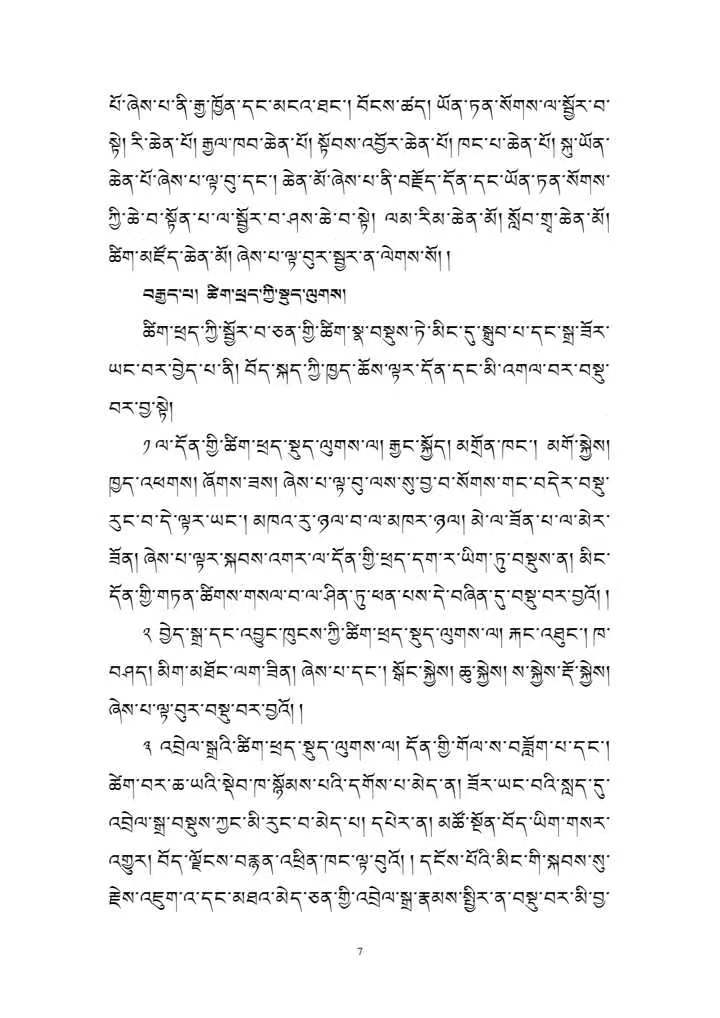 པོ་ཞེས་པ་ནི་རྒྱ་ཁྱོན་དང་མངའ་ཐང་། བོངས་ཚད། ཡོན་ཏན་སོགས་ལ་སྦྱོར་བ་
སྟེ། རི་ཆེན་པོ། རྒྱལ་ཁབ་ཆེན་པོ། སྟོབས་འབྱོར་ཆེན་པོ། ཁང་པ་ཆེན་པོ། སྐུ་ཡོན་
ཆེན་པོ་ཞེས་པ་ལྟ་བུ་དང་། ཆེན་མོ་ཞེས་པ་ནི་བརྗོད་དོན་དང་ཡོན་ཏན་སོགས་
ཀྱི་ཆེ་བ་སྟོན་པ་ལ་སྦྱོར་བ་ཤས་ཆེ་བ་སྟེ། ལམ་རིམ་ཆེན་མོ། སློབ་གྲྭ་ཆེན་མོ།
ཚིག་མཛོད་ཆེན་མོ། ཞེས་པ་ལྟ་བུར་སྦྱར་ན་ལེགས་སོ། །
བརྒྱད་པ། ཚིག་ཕྲད་ཀྱི་སྡུད་ལུགས།
ཚིག་ཕྲད་ཀྱི་སྦྱོར་བ་ཅན་གྱི་ཚིག་སྣ་བསྡུས་ཏེ་མིང་དུ་སྒྲུབ་པ་དང་སྒྲ་ཟོར་
ཡང་བར་བྱེད་པ་ནི། བོད་སྐད་ཀྱི་ཁྱད་ཆོས་ལྟར་དོན་དང་མི་འགལ་བར་བསྡུ་
བར་བྱ་སྟེ།
༡ ལ་དོན་གྱི་ཚིག་ཕྲད་སྡུད་ལུགས་ལ། རྒྱང་སྐྱོད། མགྲོན་ཁང་། མགོ་སྐྱེས།
ཁྱད་འཕགས། ཞོགས་ཟས། ཞེས་པ་ལྟ་བུ་ལས་སུ་བྱ་བ་སོགས་གང་བདེར་བསྡུ་
རུང་བ་དེ་ལྟར་ཡང་། མཁའ་རུ་ཉལ་བ་ལ་མཁར་ཉལ། མེ་ལ་ཟོན་པ་ལ་མེར་
ཟོན། ཞེས་པ་ལྟར་སྐབས་འགར་ལ་དོན་གྱི་ཕྲད་དག་ར་ཡིག་ཏུ་བསྡུས་ན། མིང་
དོན་གྱི་གཏན་ཚིགས་གསལ་བ་ལ་ཤིན་ཏུ་ཕན་པས་དེ་བཞིན་དུ་བསྡུ་བར་བྱའོ། །
༢ བྱེད་སྒྲ་དང་འབྱུང་ཁུངས་ཀྱི་ཚིག་ཕྲད་སྡུད་ལུགས་ལ། རྐང་འཐུང་། ཁ་
བཤད། མིག་མཐོང་ལག་ཟིན། ཞེས་པ་དང་། སྒོང་སྐྱེས། ཆུ་སྐྱེས། ས་སྐྱེས་རྡོ་སྐྱེས།
ཞེས་པ་ལྟ་བུར་བསྡུ་བར་བྱའོ། །
༣ འབྲེལ་སྒྲའི་ཚིག་ཕྲད་སྡུད་ལུགས་ལ། དོན་གྱི་གོལ་ས་བཟློག་པ་དང་།
ཚེག་བར་ཆ་ཡའི་སྡེབ་ཁ་སྙོམས་པའི་དགོས་པ་མེད་ན། ཟོར་ཡང་བའི་སླད་དུ་
འབྲེལ་སྒྲ་བསྡུས་ཀྱང་མི་རུང་བ་མེད་པ། དཔེར་ན། མཚོ་སྔོན་བོད་ཡིག་གསར་
འགྱུར། བོད་ལྗོངས་བརྙན་འཕྲིན་ཁང་ལྟ་བུའོ། ། དངོས་པོའི་མིང་གི་སྐབས་སུ་
རྗེས་འཇུག་འ་དང་མཐའ་མེད་ཅན་གྱི་འབྲེལ་སྒྲ་རྣམས་སྤྱིར་ན་བསྡུ་བར་མི་བྱ་
7